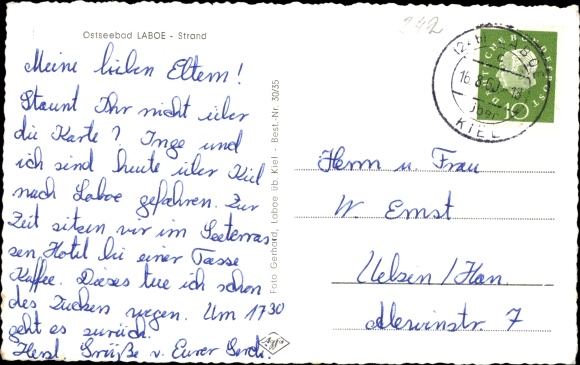 Ostseebad LABOE - Strand
Meine lieben Eltern!
Staunt Ihr nicht über
die Karte? Inge und
ich sind heute über Kiel
nach Laboe gefahren. Zur
Zeit sitzen wir im Seeterras
sen Hotel bei einer Tasse
Kaffee. Dieses tue ich schon
des Zuckers wegen. Um 17 30
geht es zurück.
Herzl. Grüße v. Eurer
Foto Gerhard, Laboe üb Kiel - Best.-Nr. 30/35
242
LABOE
16.8.60
über
KIEL
DEUTSCHE BUNDESPOST
10
Herrn u. Frau
W. Ernst
Uelzen/Han.
7